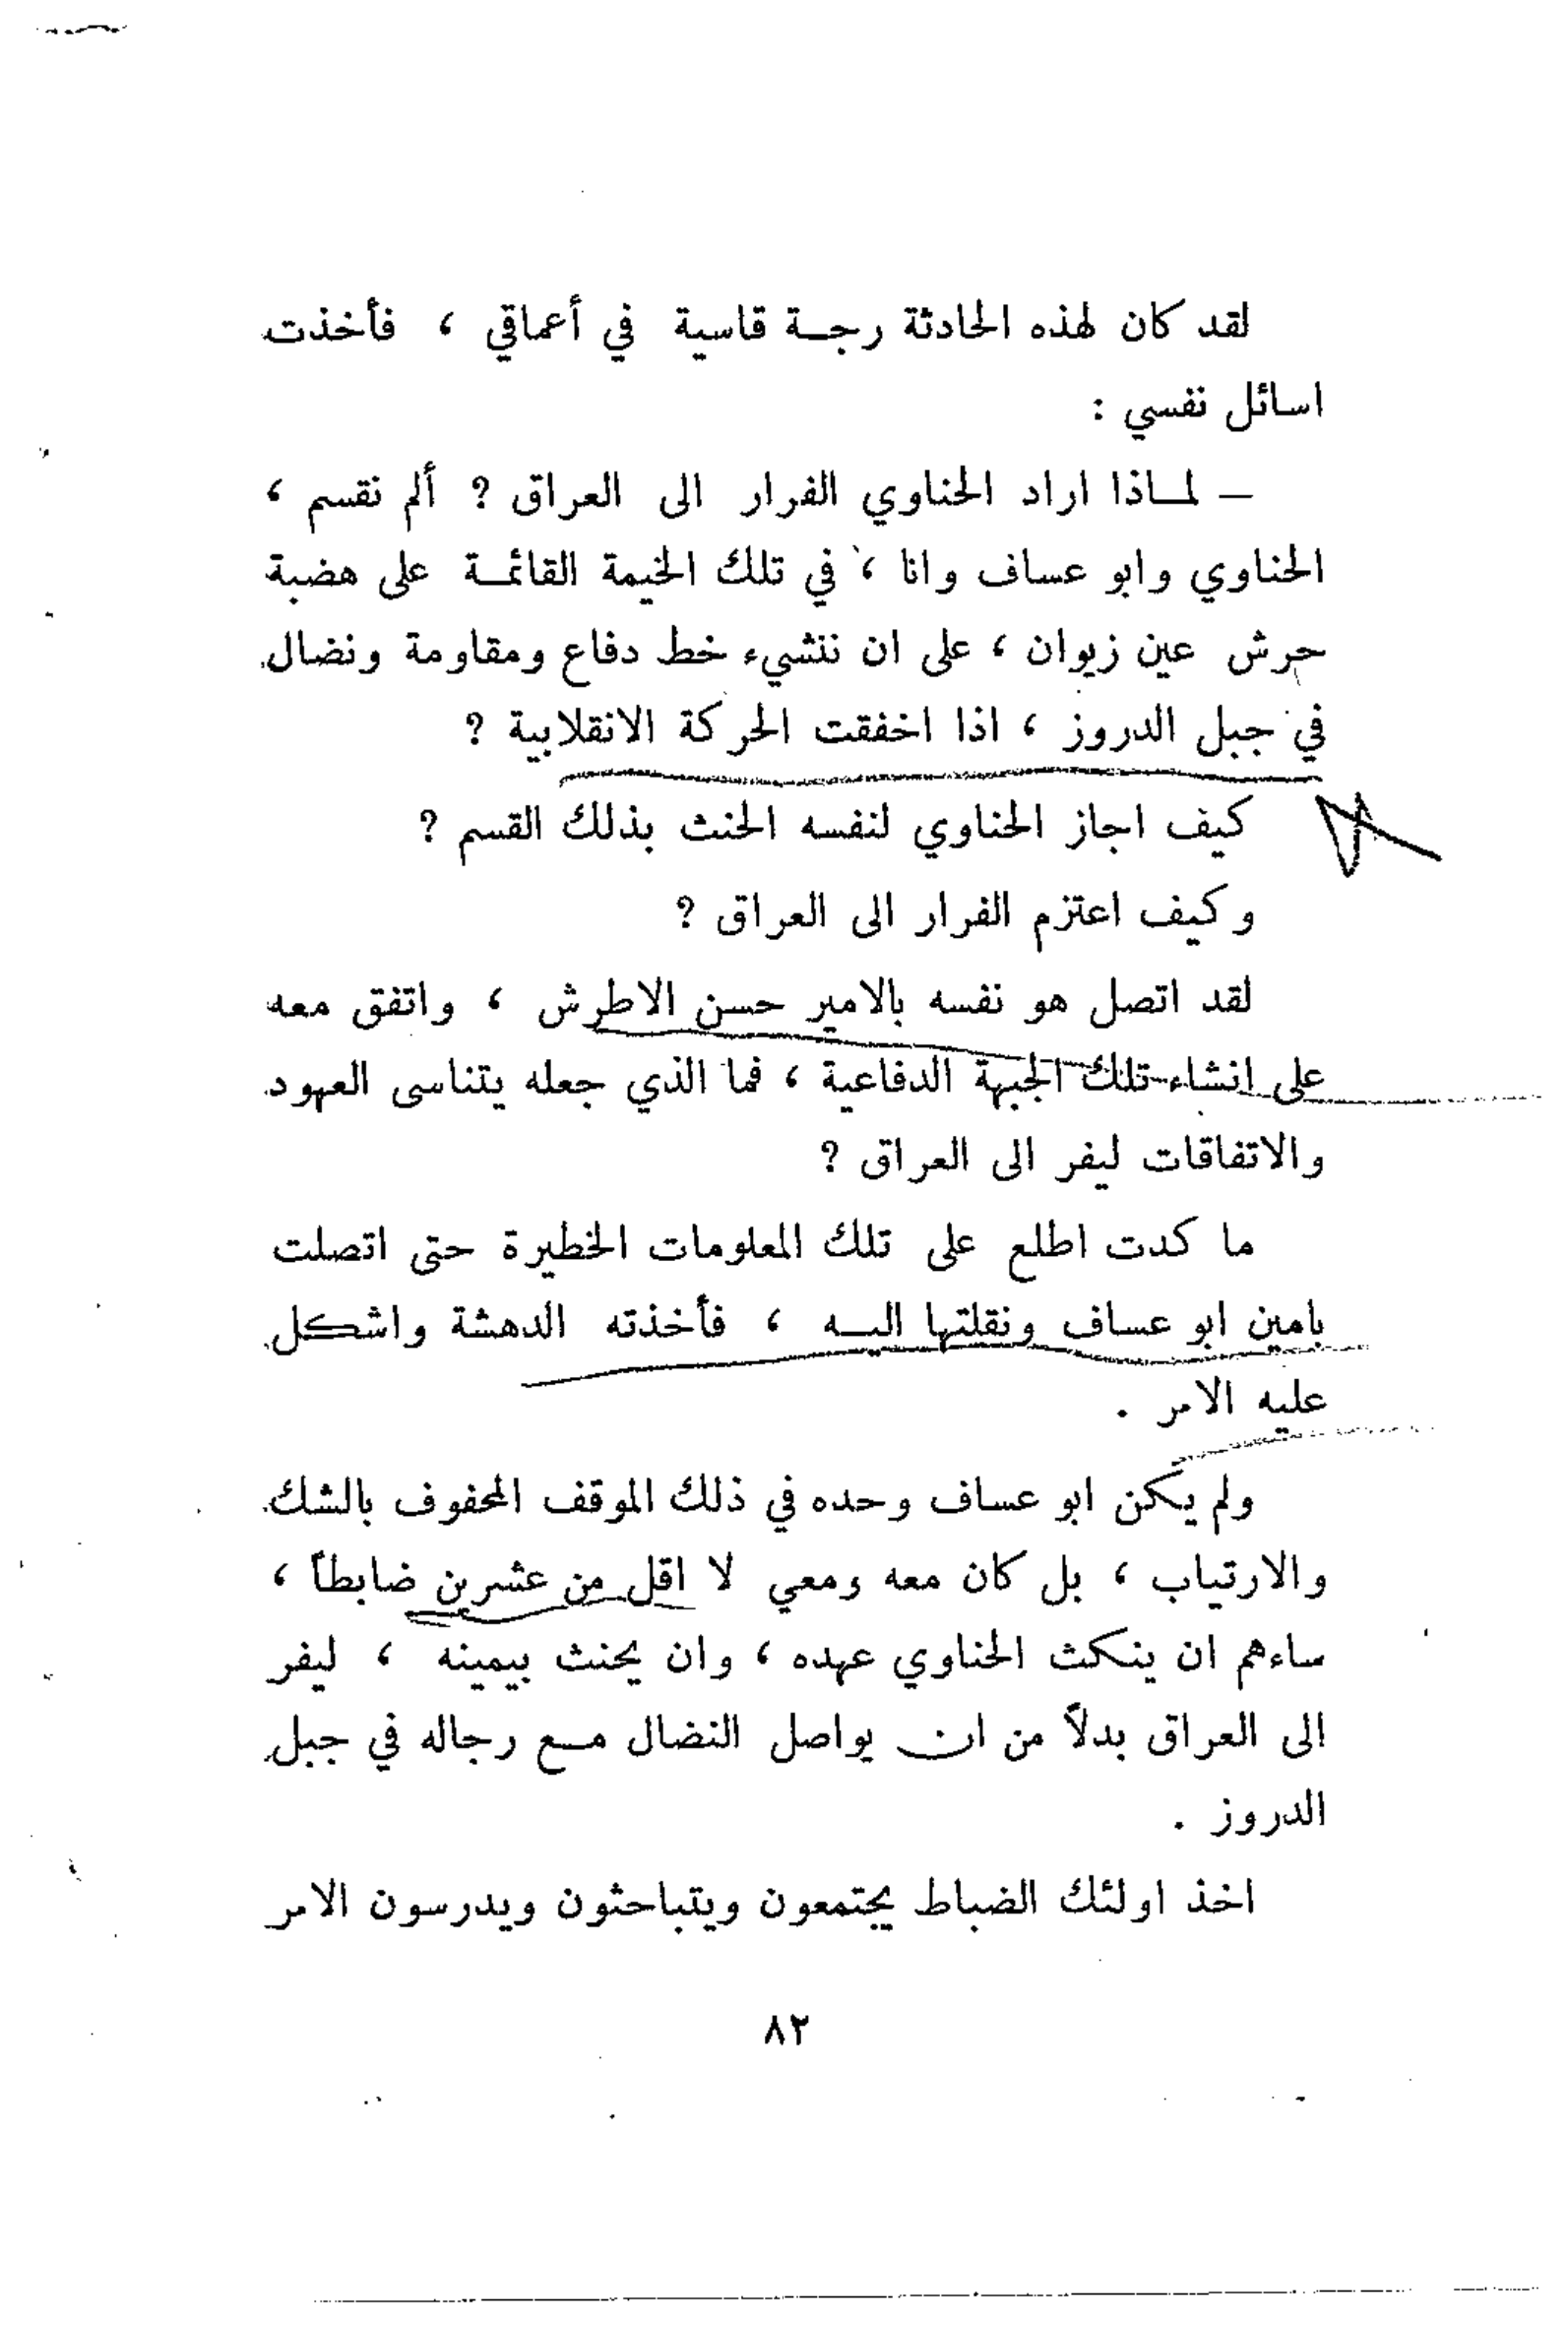 لقد كان لهذه الحادثة رجـة قاسية في أعماقي ، فأخذت
اسائل نفسي :
— لمـاذا اراد الحناوي الفرار الى العراق ? ألم نقسم ،
الحناوي وابو عساف وانا ، في تلك الخيمة القائمـة على هضبة
حرش عين زيوان ، على ان ننشيء خط دفاع ومقاومة ونضال
في جبل الدروز ، اذا اخفقت الحركة الانقلابية ?
كيف اجاز الحناوي لنفسه الحنث بذلك القسم ?
وكيف اعتزم الفرار الى العراق ?
لقد اتصل هو نفسه بالامير حسن الاطرش ، واتفق معه
على انشاء تلك الجبهة الدفاعية ، فما الذي جعله يتناسى العهود
والاتفاقات ليفر الى العراق ?
ما كدت اطلع على تلك المعلومات الخطيرة حتى اتصلت
بامين ابو عساف ونقلتها اليـه ، فأخذته الدهشة واشكل
عليه الامر .
ولم يكن ابو عساف وحده في ذلك الموقف المحفوف بالشك
والارتياب ، بل كان معه ومعي لا اقل من عشرين ضابطاً ،
ساءهم ان ينكث الحناوي عهده ، وان يحنث بيمينه ، ليفر
الى العراق بدلاً من ان يواصل النضال مـع رجاله في جبل
الدروز .
اخذ اولئك الضباط يجتمعون ويتباحثون ويدرسون الامر
٨٢